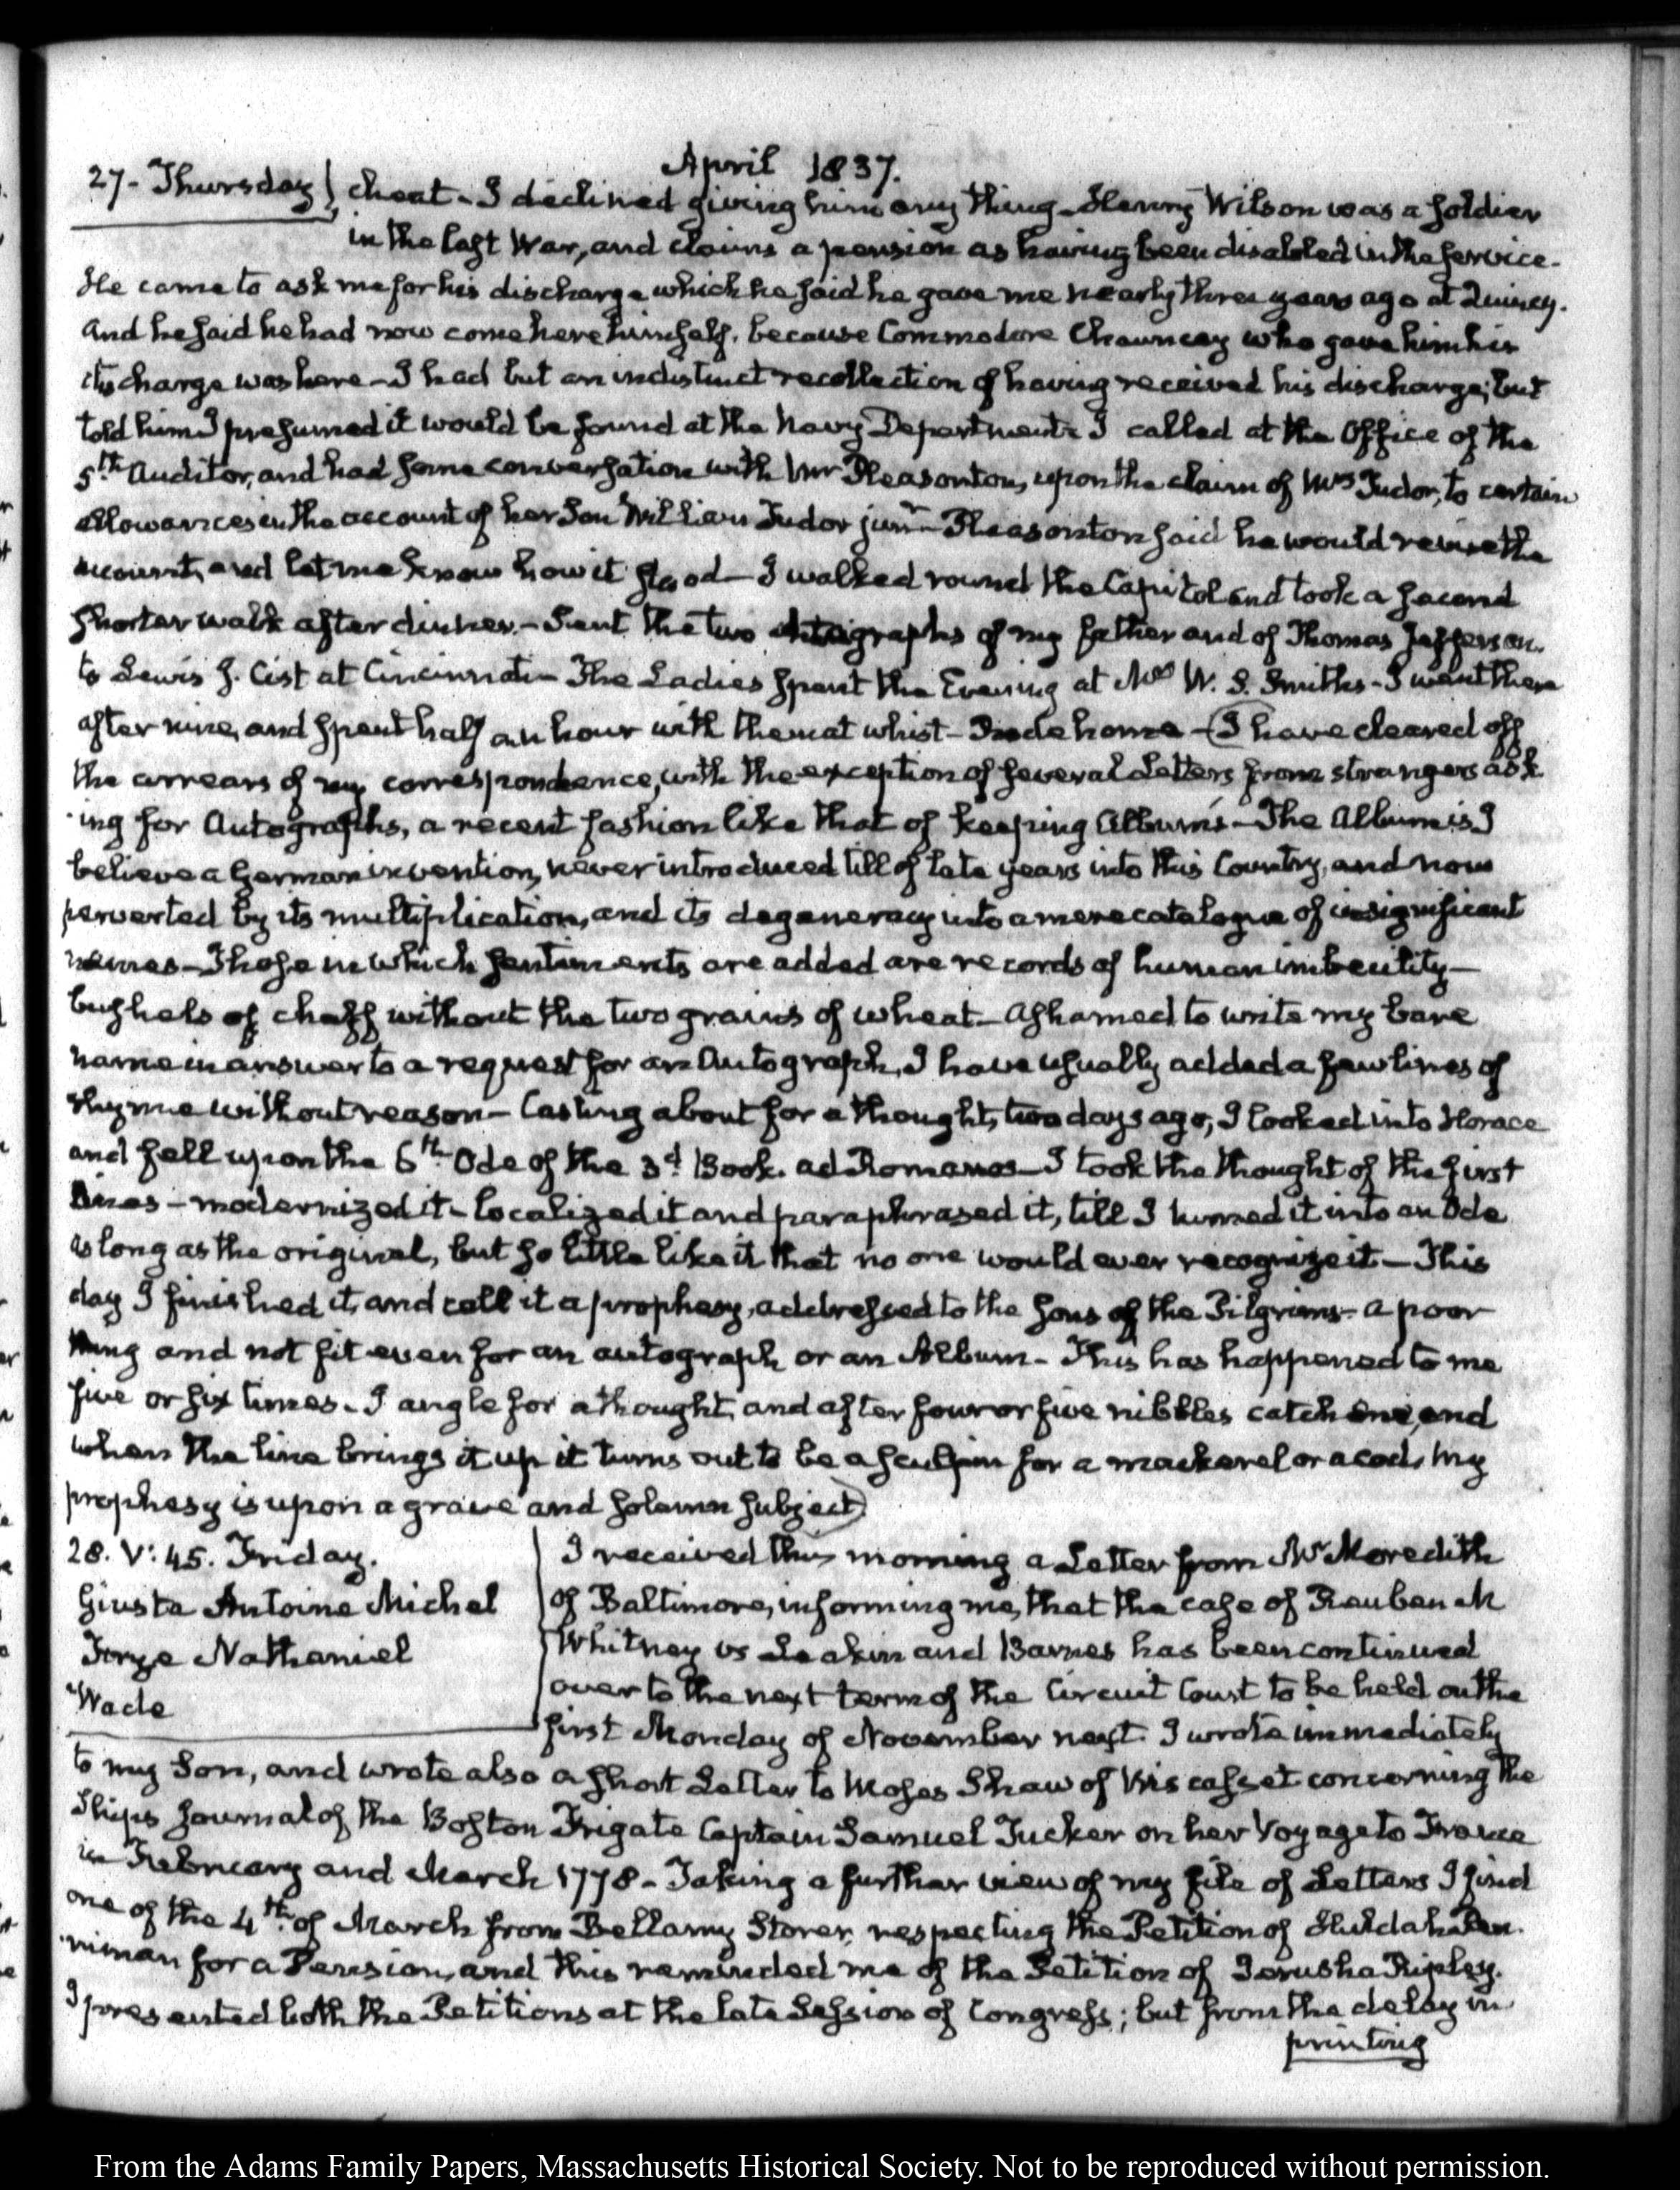 April 1837.
27- Thursday) cheat - I declined giving him any thing - Henry Wilson was a soldier
in the last War, and claims a pension as having been disabled in the service -
He came to ask me for his discharge which he said he gave me nearly three years ago at Quincy.
And he said he had now come here himself, because Commodore Chauncey who gave him his
discharge was here - I had but an indistinct recollection of having received his discharge; but
told him I presumed it would be found at the Navy Department - I called at the Office of the
5th Auditor, and had some conversation with Mr Pleasonton, upon the claim of Mrs Tudor, to certain
allowances in the account of her Son William Tudor junr - Pleasonton said he would revise the
account, and let me know how it stood - I walked round the Capitol and took a second
shorter walk after dinner. - Sent the two autographs of my father and of Thomas Jefferson
to Lewis J. Cist at Cincinnati - The Ladies spent the Evening at Mrs W. S. Smith's - I went there
after nine, and spent half an hour with them at whist - Rode home - (I have cleared off
the arrears of my correspondence, with the exception of several Letters from strangers ask
-ing for Autographs, a recent fashion like that of keeping Albums - The Album is I
believe a German invention, never introduced till of late years into this Country, and now
perverted by its multiplication, and its degeneracy into a mere catalogue of insignificant
names - Those in which sentiments are added are records of human imbecility -
bushels of chaff without the two grains of wheat - Ashamed to write my bare
name in answer to a request for an Autograph, I have usually added a few lines of
rhyme without reason - Casting about for a thought, two days ago, I looked into Horace
and fell upon the 6th Ode of the 3d Book. ad Romanos - I took the thought of the first
lines - modernized it - localized it and paraphrased it, till I turned it into an Ode
as long as the original, but so little like it that no one would ever recognize it - This
day I finished it, and call it a prophesy, addressed to the Sons of the Pilgrims - a poor
thing and not fit even for an autograph or an Album - This has happened to me
five or six times - I angle for a thought, and after four or five nibbles catch one, and
when the line brings it up it turns out to be a sculpin for a mackerel or a cod. My
prophesy is upon a grave and solemn subject)
28. V: 45. Friday.
Giusta Antoine Michel
Frye Nathaniel
Wade
I received this morning a Letter from Mr Meredith
of Baltimore, informing me, that the case of Reuben M
Whitney vs Leakin and Barnes has been continued
over to the next term of the Circuit Court to be held on the
first Monday of November next. I wrote immediately
to my Son, and wrote also a short Letter to Moses Shaw of Wiscasset concerning the
Ships Journal of the Boston Frigate Captain Samuel Tucker on her Voyage to France
in February and March 1778 - Taking a further view of my file of Letters I find
one of the 4th of March from Bellamy Storer, respecting the Petition of Huldah Pen
-niman for a Pension, and this reminded me of the Petition of Jerusha Ripley.
I presented both the Petitions at the late Session of Congress; but from the delay in
printing
From the Adams Family Papers, Massachusetts Historical Society. Not to be reproduced without permission.